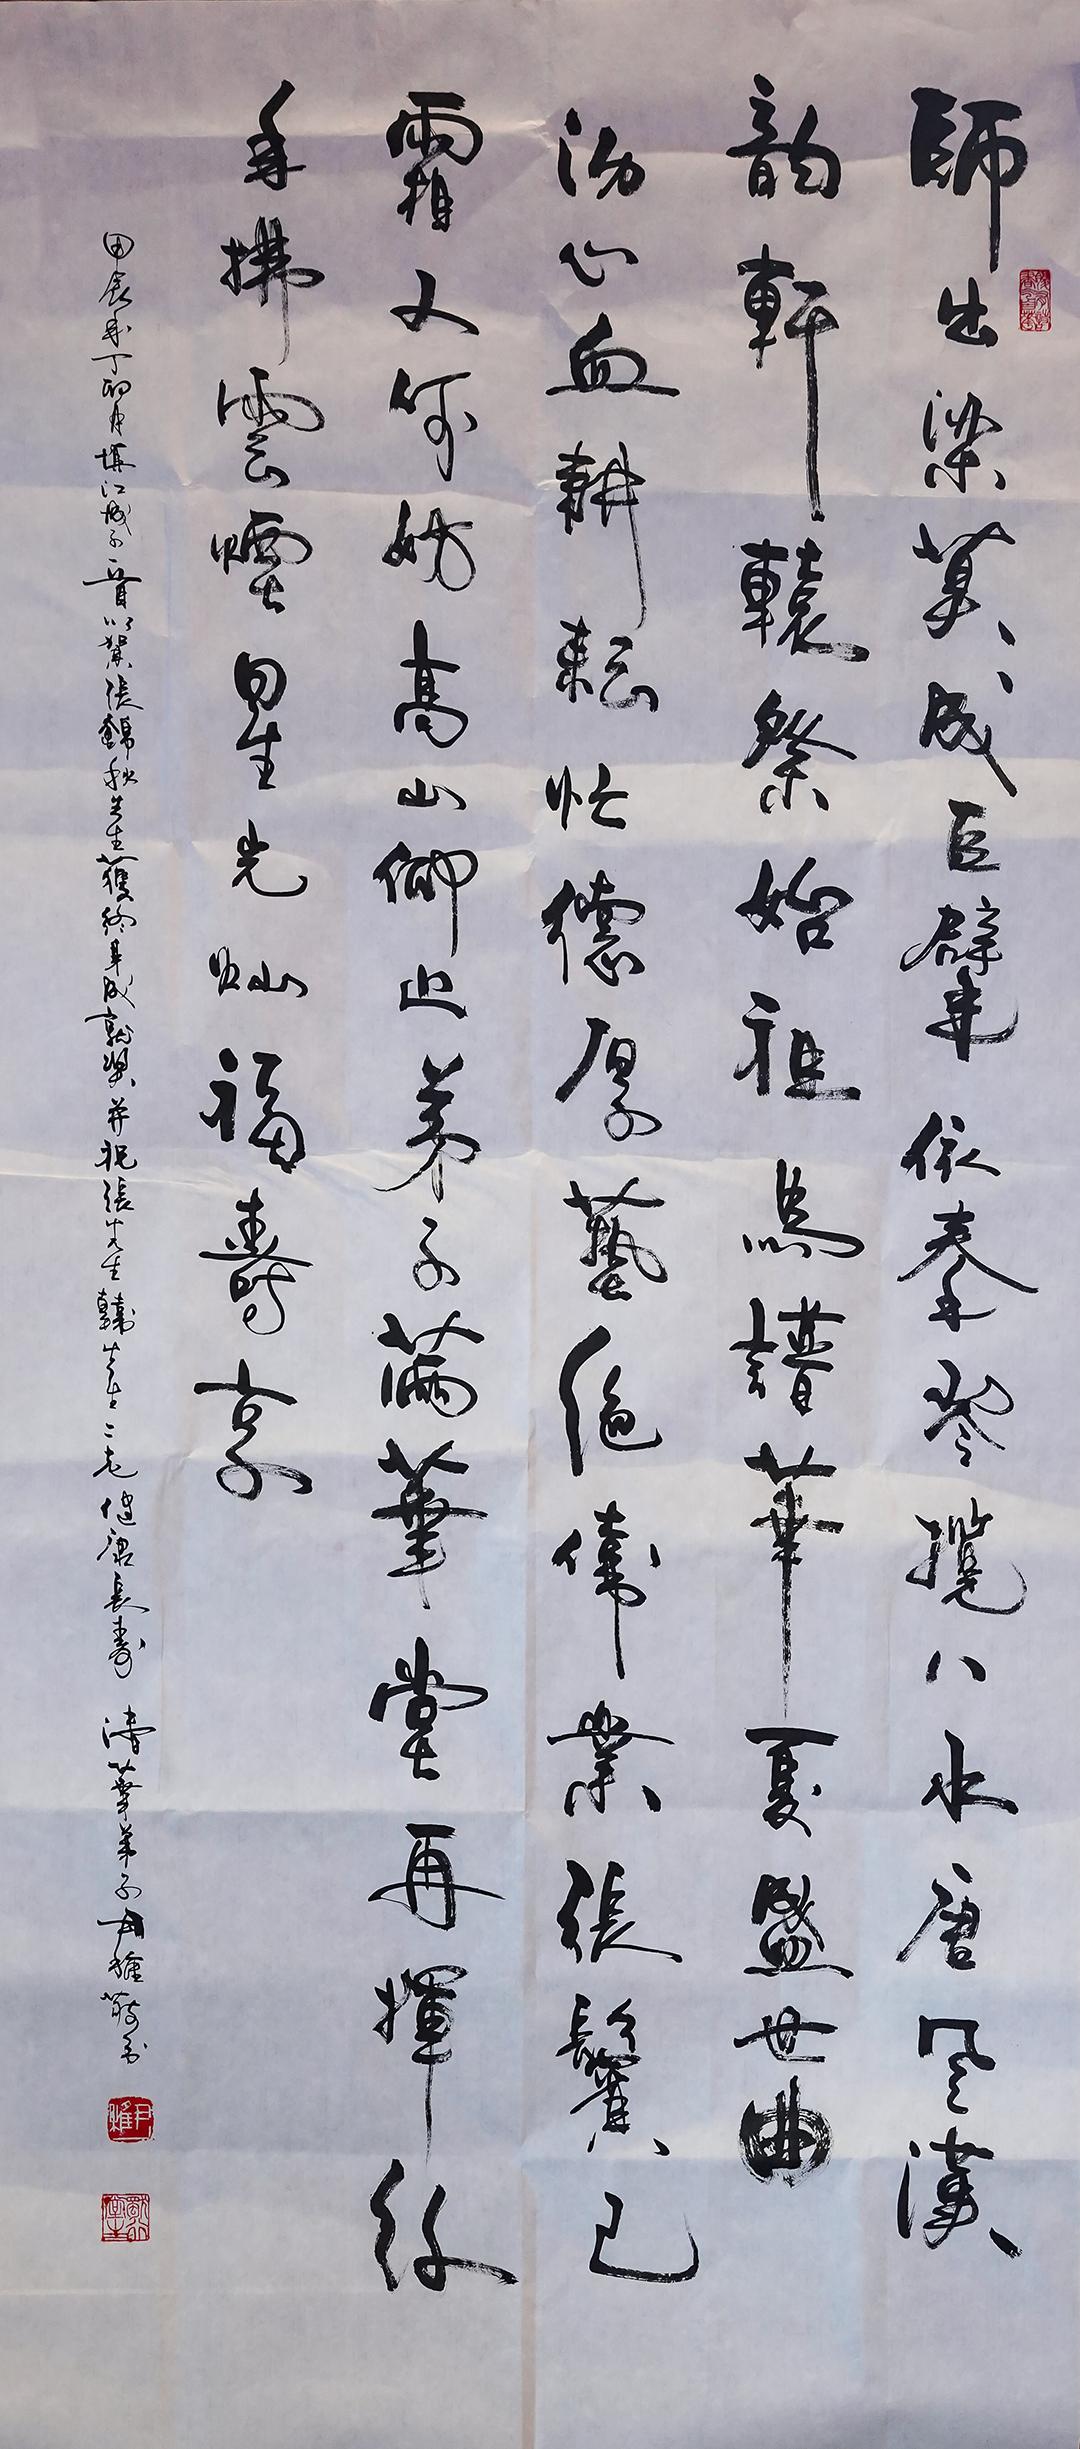 師出梁莫成巨擘依秦岭攬八水唐風漢
韵軒轅祭始祖為譜華夏盛世曲
沥心血耕耘忙德厚藝絕偉業張鬢已
霜又何妨高山仰止弟子滿華堂再揮
筆拂雲煙星光灿福壽享
甲辰年丁卯月填江城子一首以賀張錦秋先生獲終身成就獎并祝張先生韓先生二老健康長壽 清華弟子尹稚敬書
尹稚